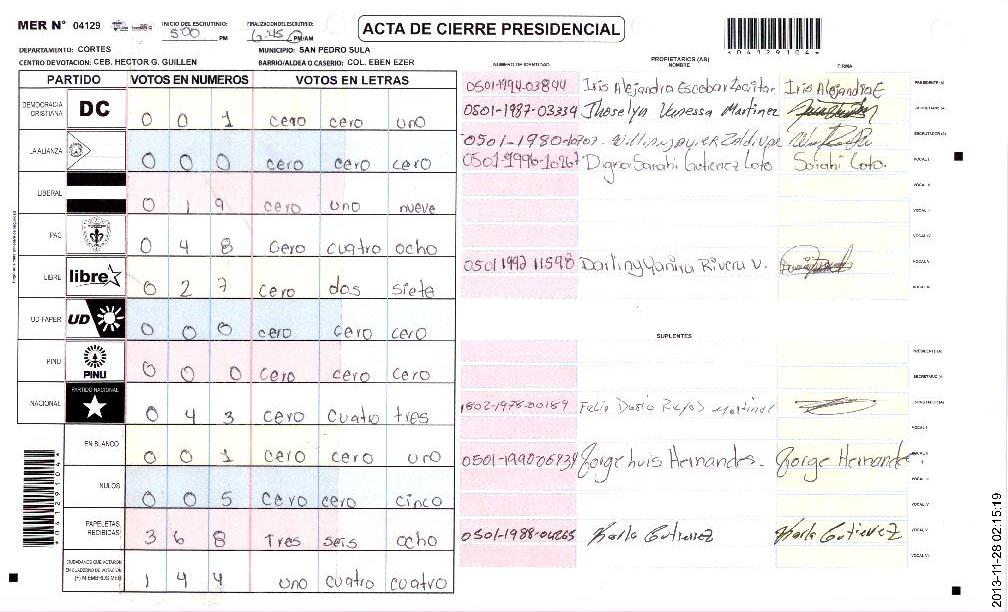 MER N° 04129
INICIO DEL ESCRUTINIO: 5:00 PM
FINALIZACION DEL ESCRUTINIO: 6:45 PM/AM
ACTA DE CIERRE PRESIDENCIAL
*04129104*
DEPARTAMENTO: CORTES
MUNICIPIO: SAN PEDRO SULA
CENTRO DE VOTACION: CEB. HECTOR G. GUILLEN
BARRIO/ALDEA O CASERIO: COL. EBEN EZER
PARTIDO VOTOS EN NUMEROS VOTOS EN LETRAS
DEMOCRACIA CRISTIANA DC 0 0 1 cero cero uno
LA ALIANZA 0 0 0 cero cero cero
LIBERAL 0 1 9 cero uno nueve
PAC 0 4 8 cero cuatro ocho
LIBRE libre 0 2 7 cero dos siete
UD-FAPER UD 0 0 0 cero cero cero
PINU PINU 0 0 0 cero cero cero
NACIONAL PARTIDO NACIONAL 0 4 3 cero cuatro tres
EN BLANCO 0 0 1 cero cero uno
NULOS 0 0 5 cero cero cinco
PAPELETAS RECIBIDAS 3 6 8 Tres seis ocho
CIUDADANOS QUE VOTARON EN CUADERNO DE VOTACION (+) MIEMBROS MER 1 4 4 uno cuatro cuatro
*04129104*
NUMERO DE IDENTIDAD
PROPIETARIOS (AS)
NOMBRE
FIRMA
0501-1994-03844 Iris Alejandra Escobar Iris Alejandra E PRESIDENTE (A)
0501-1987-03334 Jhoselyn Vanessa Martinez SECRETARIO (A)
0501-1980- ESCRUTADOR (A)
0501-1996-10267 Digna Sarahi Gutierrez Coto Sarahi Coto. VOCAL I
VOCAL II
VOCAL III
VOCAL IV
0501 1992 11598 Darling Yanina Rivera V. VOCAL V
VOCAL VI
SUPLENTES
PRESIDENTE (A)
SECRETARIO (A)
1802-1978-00189 Felix Dario Rejos Martinez ESCRUTADOR (A)
VOCAL I
0501-1990-06939 Jorge Luis Hernandes. Jorge Hernande VOCAL II
VOCAL III
VOCAL IV
0501-1988-04265 Karla Gutierrez Karla Gutierrez VOCAL V
VOCAL VI
2013-11-28 02:15:19